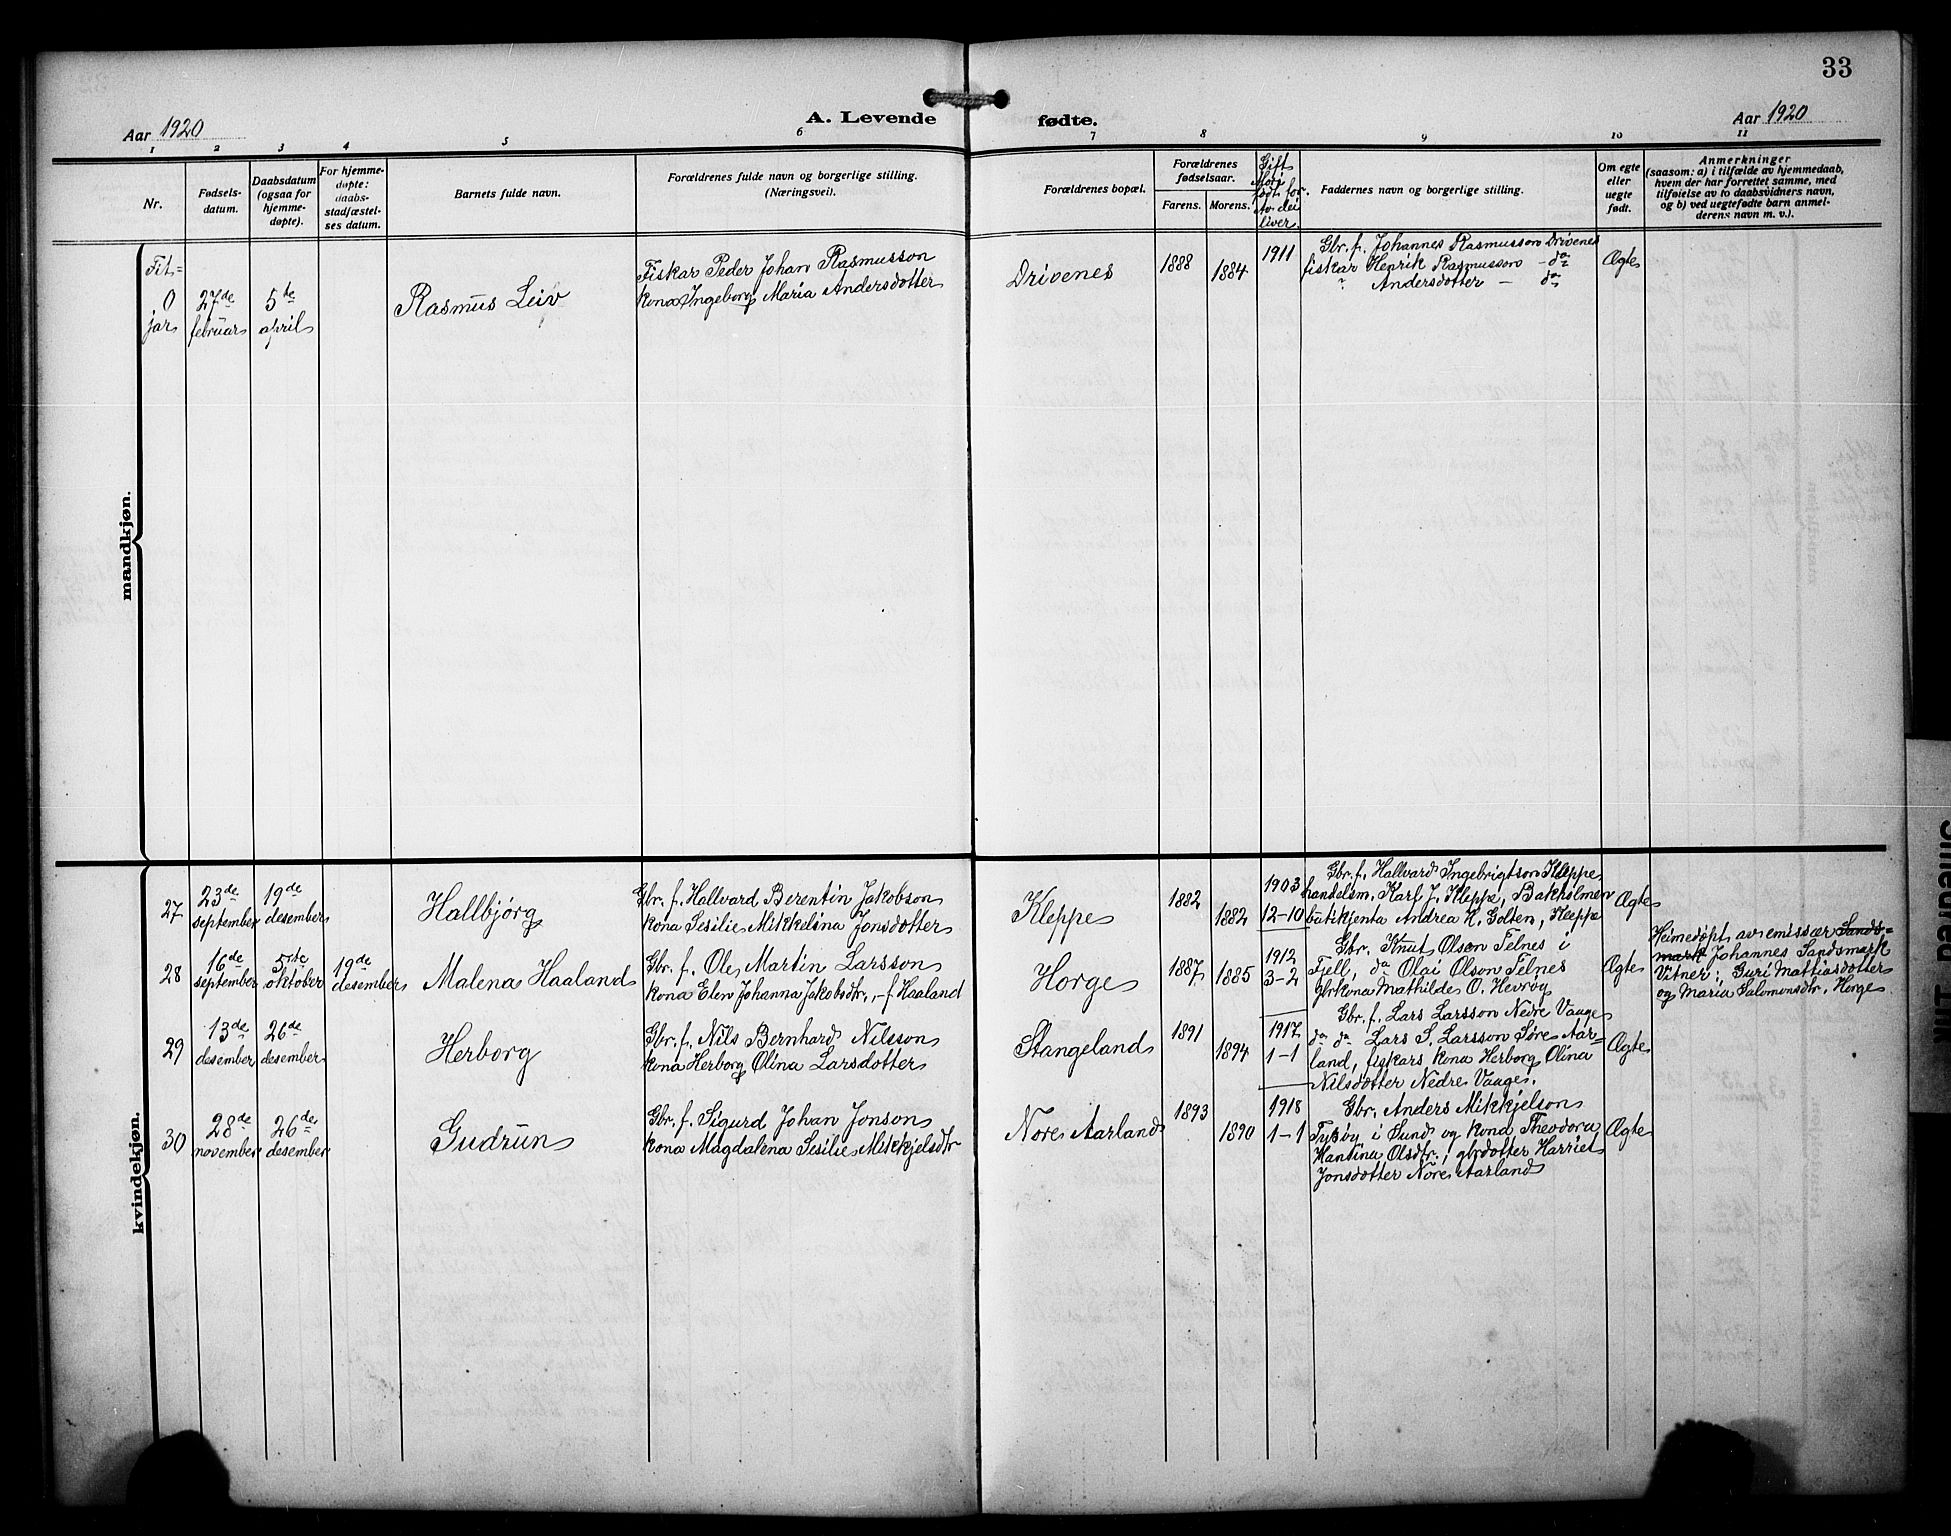 33
Aar 1920
A. Levende fødte.
Aar 1920
1 2 3 4 5 6 7 8 9 10 11
Nr.
Fødsels-
datum.
Daabsdatum
(ogsaa for
hjemme-
døpte).
For hjemme-
døpte:
daabs-
stadfæstel-
ses datum.
Barnets fulde navn.
Forældrenes fulde navn og borgerlige stilling.
(Næringsvei).
Forældrenes bopæl.
Forældrenes
fødselsaar.
Farens. Morens.
Gift
liver
Faddernes navn og borgerlige stilling.
Om egte
eller
uegte
født.
Anmerkninger
(saasom: a) i tilfælde av hjemmedaab,
hvem der har forrettet samme, med
tilføielse av to daabsvidners navn,
og b) ved uegtefødte barn anmel-
derens navn m. v.).
mandkjøn.
Fit=
0
jar
27de
februar
5te
april
Rasmus Leiv
Fiskar Peder Johan Rasmusson
kona Ingeborg Maria Andersdotter
Drivenes
1888
1884
1911
Gbr. f. Johannes Rasmusson Drivenes
fiskar Henrik Rasmusson - da
" Andersdotter - da
Ægte
kvindekjøn.
27
23de
september
19de
desember
Hallbjørg
Gbr. f. Hallvard Berentin Jakobson
kona Sesilie Mikkelina Jonsdotter
Kleppe
1882
1882
1903
12-10
Gbr. f. Hallvard Ingebrigtson Kleppe,
handelsm. Karl J. Kleppe, Bakholmen
butikjenta Andrea H. Golten, Kleppe
Ægte
28
16de
september
5rte
oktober
19de
desember
Malena Haaland
Gbr. f. Ole Martin Larsson
kona Elen Johanna Jakobsdtr., - f. Haaland
Horge
1887
1885
1912
3-2
Gbr. Knut Olson Telnes i
Fjell, da Olai Olson Telnes
gbrkona Mathilde O. Hevrøy
Ægte
Heimedøpt av emissær Sands=
mark Johannes Sandsmark
Vitner: Guri Mattiasdotter
og Maria Salomonsdtr. Horge
29
13de
desember
26de
desember
Herborg
Gbr. f. Nils Bernhard Nilsson
kona Herborg Olina Larsdotter
Stangeland
1891
1894
1917
1-1
Gbr. f. Lars Larsson Nedre Vaage
da da Lars S. Larsson Søre Aar=
land, fiskars kona Herborg Olina
Nilsdotter Nedre Vaage.
Ægte
30
28de
november
26de
desember
Gudrun
Gbr. f. Sigurd Johan Jonson
kona Magdalena Sesilie Mikkjelsdtr
Nore Aarland
1893
1890
1918
1-1
Gbr. Anders Mikkjelson
Tyssøy i Sund og kona Theodora
Hantina Olsdtr.; gbrdotter Harriet
Jonsdotter Nore Aarland
Ægte